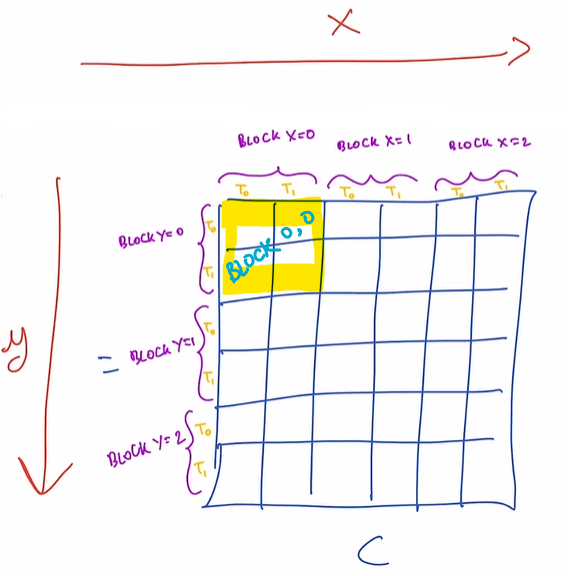 X
BLOCK X=0 BLOCK X=1 BLOCK X=2
T0 T1 T0 T1 T0 T1
BLOCK Y=0
T0
T1
BLOCK 0,0
y
=
BLOCK Y=1
T0
T1
BLOCK Y=2
T0
T1
C